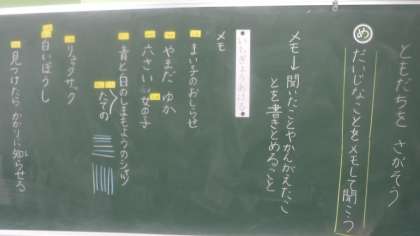 ともだちを さがそう
め だいじなことをメモして聞こう
メモ→聞いたことやかんがえたこ
とを書きとめること
いちぎょうあける
メモ
まい子のおしらせ
やまだ ゆか
六さいの女の子
青と白のしまもようのシャツ
たての
リュックサック
白いぼうし
見つけたらかかりに知らせる